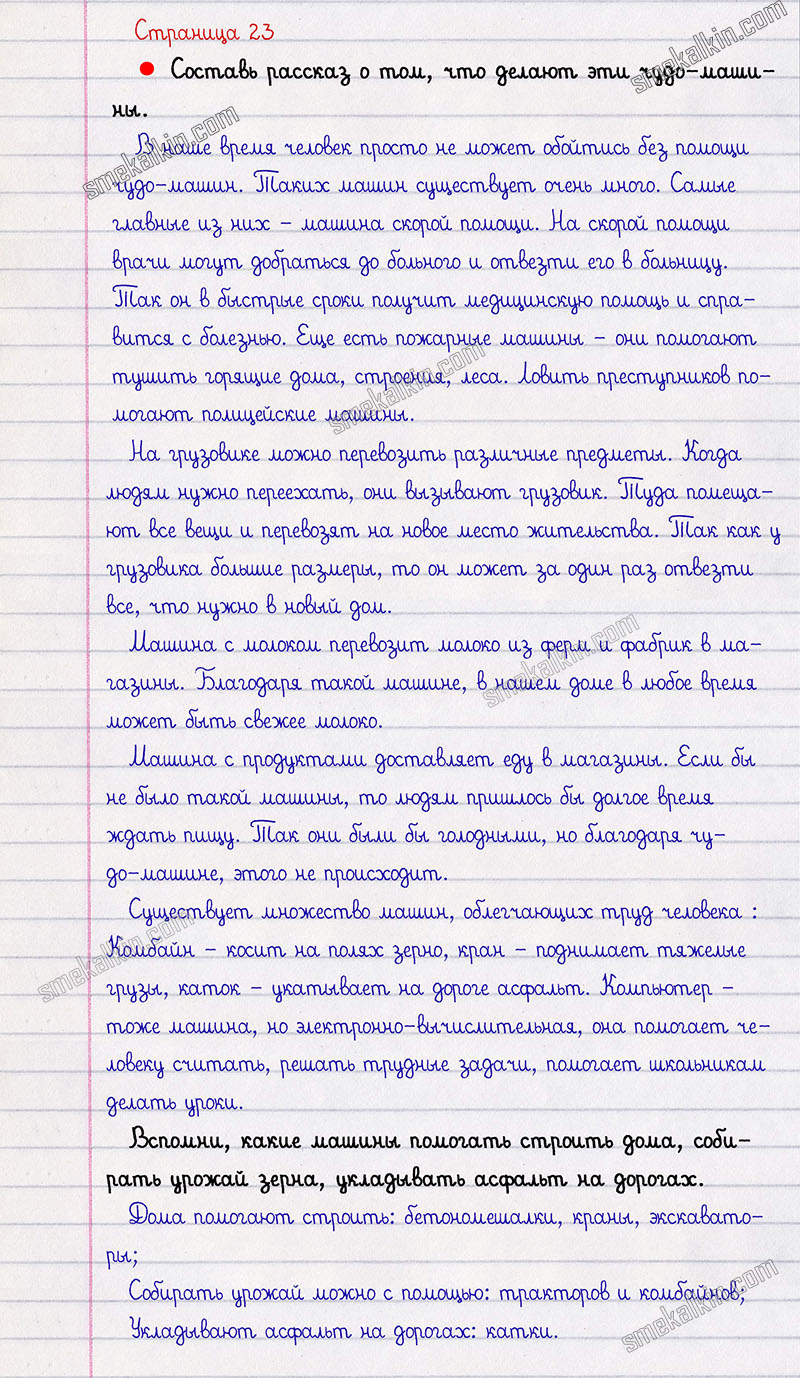 Страница 23
● Составь рассказ о том, что делают эти чудо-маши-
ны.
В наше время человек просто не может обойтись без помощи
чудо-машин. Таких машин существует очень много. Самые
главные из них – машина скорой помощи. На скорой помощи
врачи могут добраться до больного и отвезти его в больницу.
Так он в быстрые сроки получит медицинскую помощь и спра-
вится с болезнью. Еще есть пожарные машины – они помогают
тушить горящие дома, строения, леса. Ловить преступников по-
могают полицейские машины.
На грузовике можно перевозить различные предметы. Когда
людям нужно переехать, они вызывают грузовик. Туда помеща-
ют все вещи и перевозят на новое место жительства. Так как у
грузовика большие размеры, то он может за один раз отвезти
все, что нужно в новый дом.
Машина с молоком перевозит молоко из ферм и фабрик в ма-
газины. Благодаря такой машине, в нашем доме в любое время
может быть свежее молоко.
Машина с продуктами доставляет еду в магазины. Если бы
не было такой машины, то людям пришлось бы долгое время
ждать пищу. Так они были бы голодными, но благодаря чу-
до-машине, этого не происходит.
Существует множество машин, облегчающих труд человека :
Комбайн – косит на полях зерно, кран – поднимает тяжелые
грузы, каток – укатывает на дороге асфальт. Компьютер –
тоже машина, но электронно-вычислительная, она помогает че-
ловеку считать, решать трудные задачи, помогает школьникам
делать уроки.
Вспомни, какие машины помогать строить дома, соби-
рать урожай зерна, укладывать асфальт на дорогах.
Дома помогают строить: бетономешалки, краны, экскавато-
ры;
Собирать урожай можно с помощью: тракторов и комбайнов;
Укладывают асфальт на дорогах: катки.
smekalkin.com
smekalkin.com
smekalkin.com
smekalkin.com
smekalkin.com
smekalkin.com